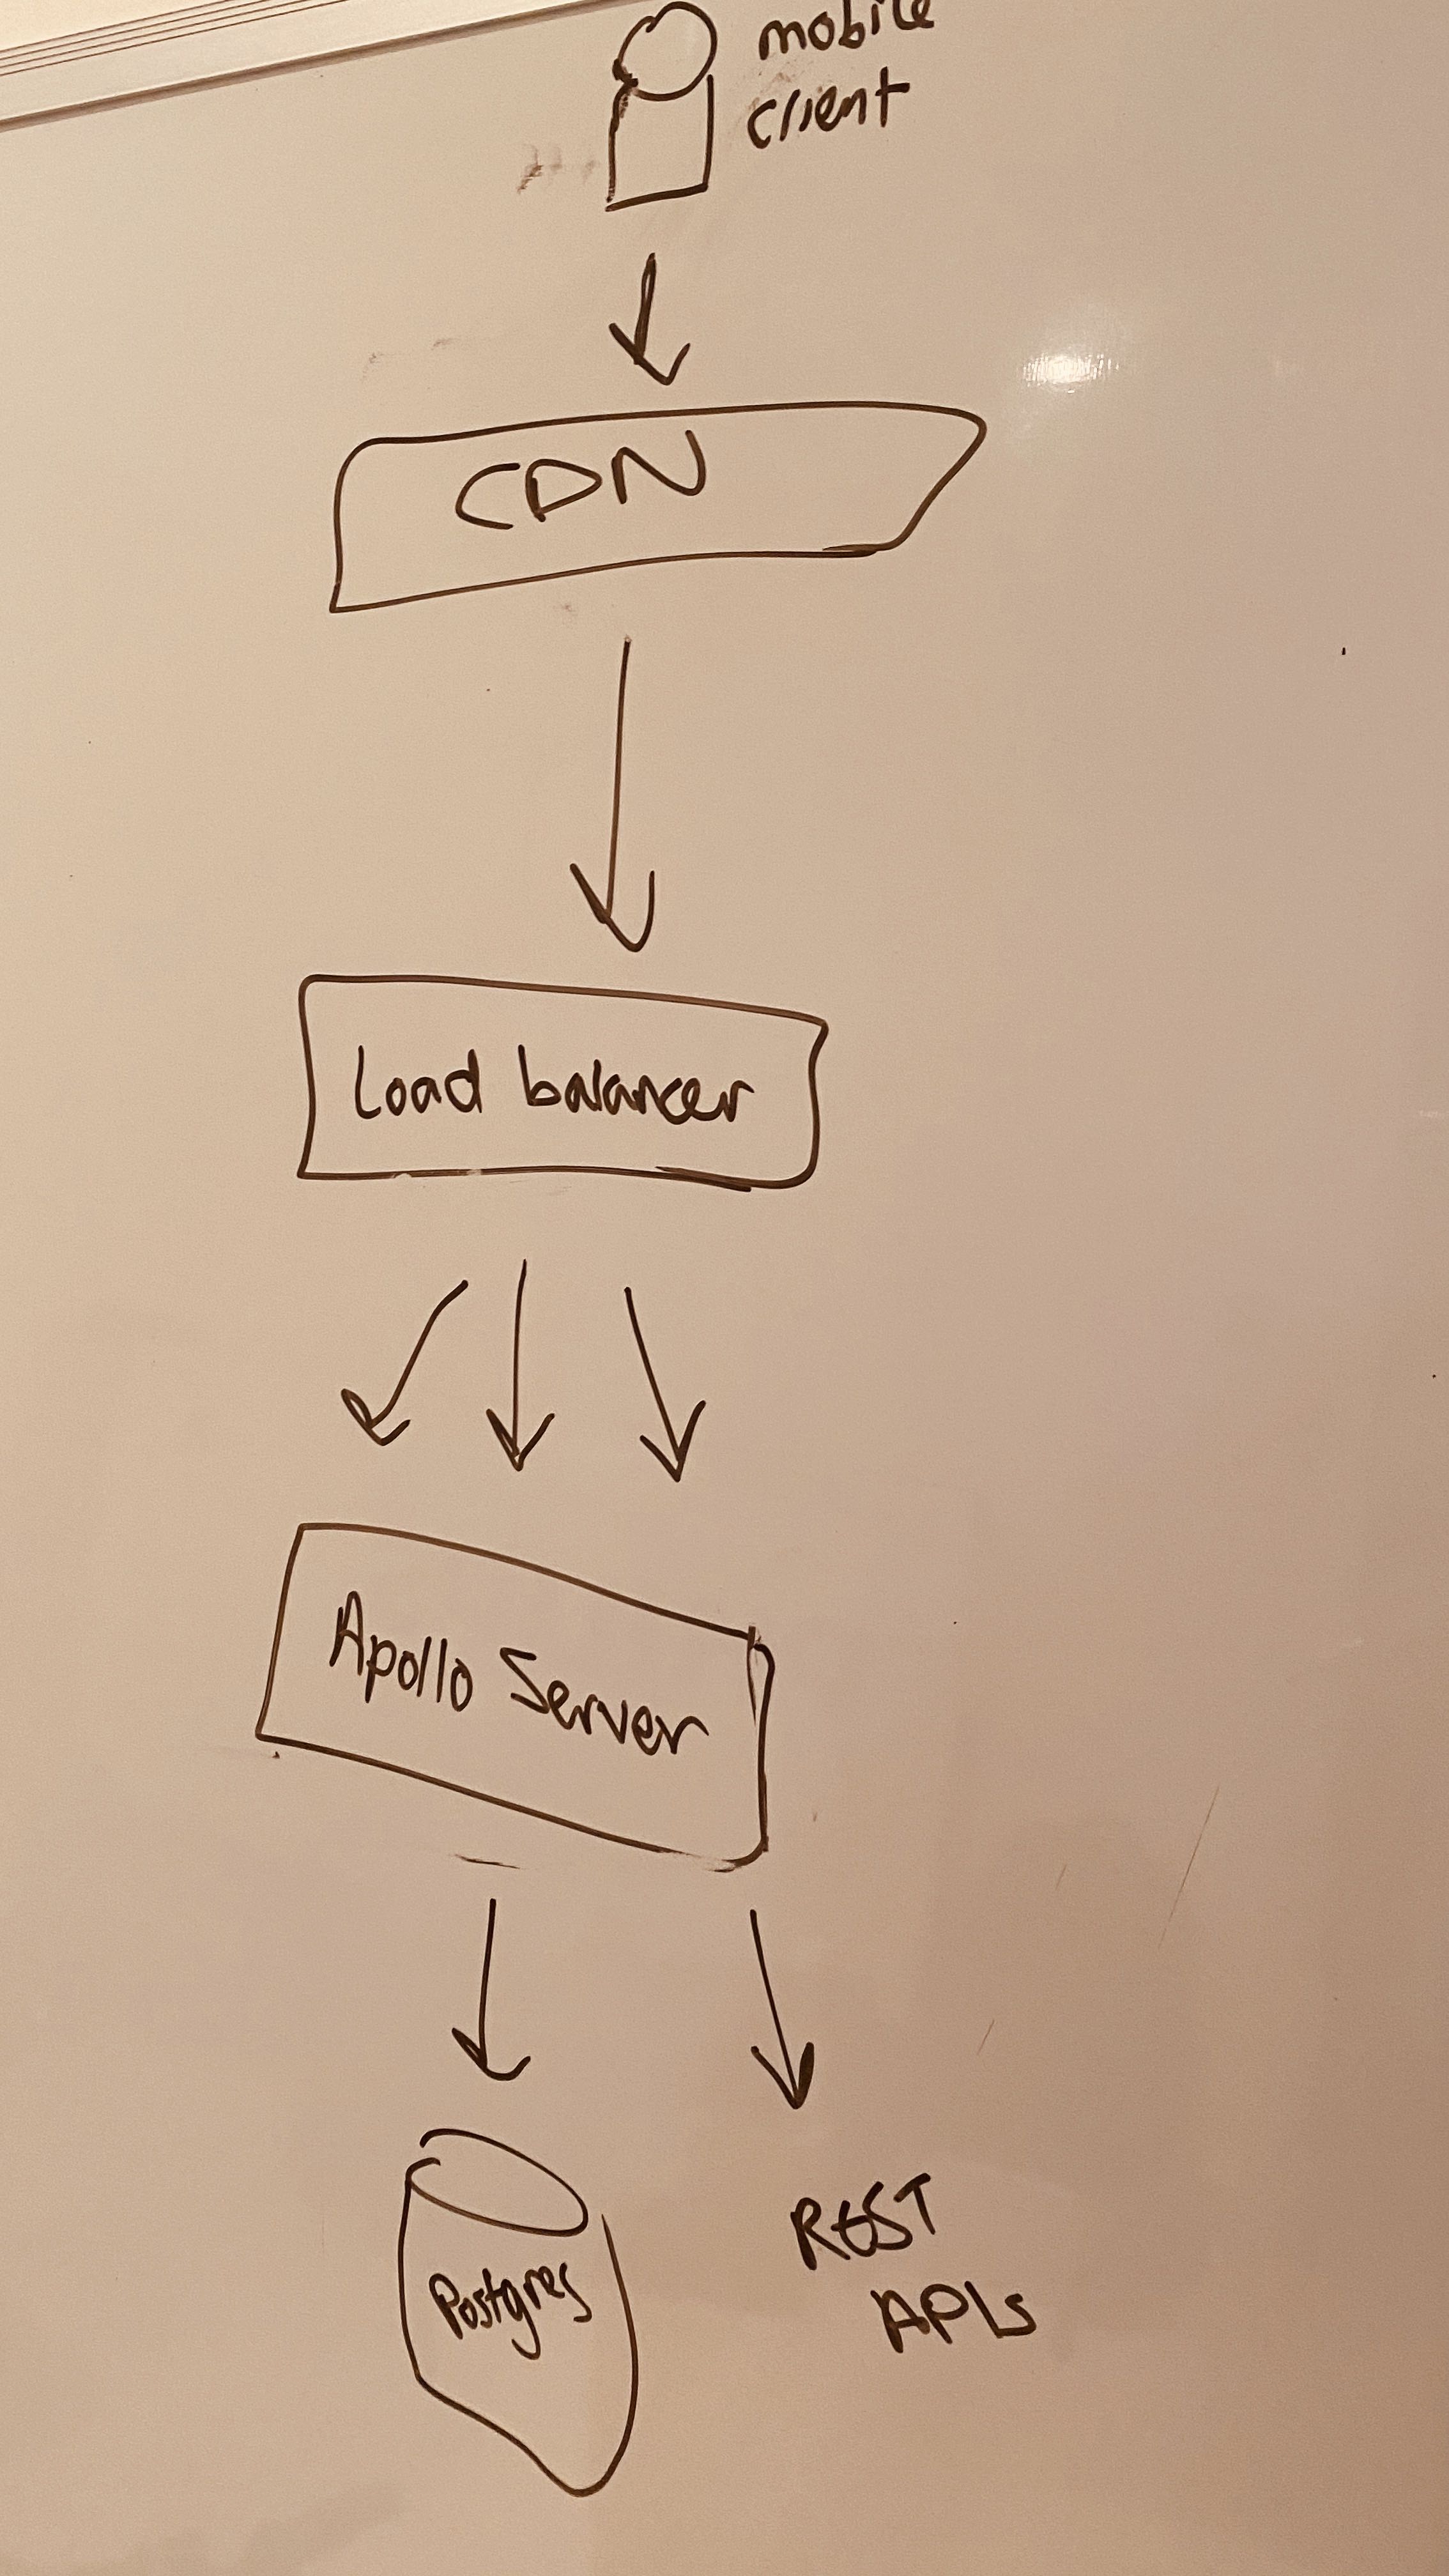 mobile
client
CDN
Load balancer
Apollo Server
Postgres
REST
APIs